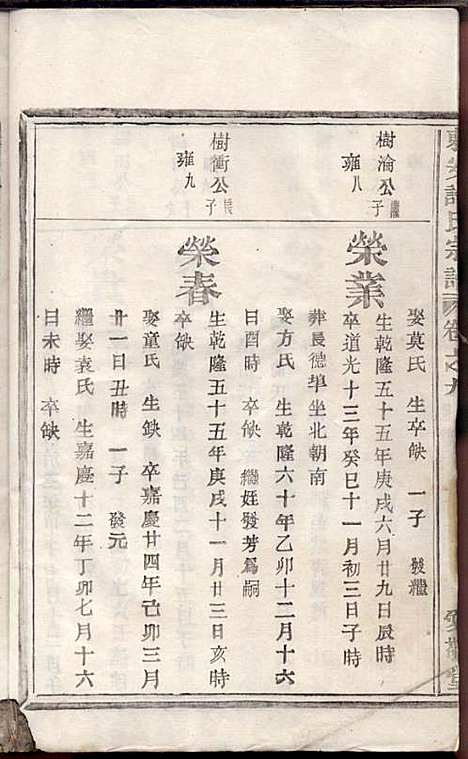 娶莫氏 生卒缺 一子 發繼
樹淪公子
雍八
榮業
生乾隆五十五年庚戌六月廿九日辰時
卒道光十三年癸巳十一月初三日子時
葬長德埠坐北朝南
娶方氏 生乾隆六十年乙卯十二月十六
日酉時 卒缺 繼姪發芳為嗣
樹衝公長子
雍九
榮春
生乾隆五十五年庚戌十一月廿三日亥時
卒缺
娶童氏 生缺 卒嘉慶廿四年己卯三月
廿一日丑時 一子 發元
繼娶袁氏 生嘉慶十二年丁卯七月十六
日未時 卒缺